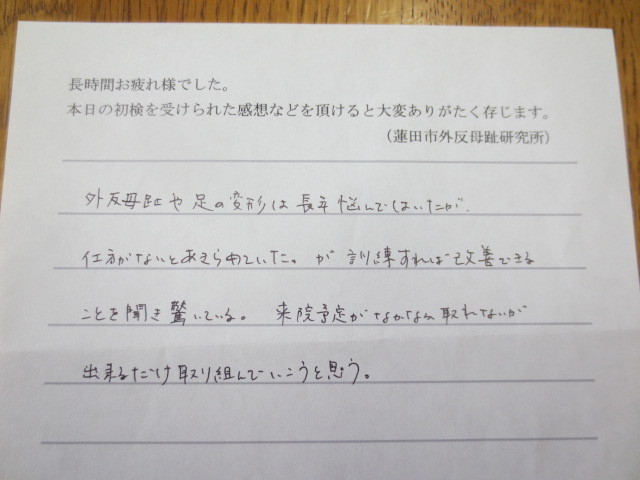 長時間お疲れ様でした。
本日の初検を受けられた感想などを頂けると大変ありがたく存じます。
（蓮田市外反母趾研究所）
外反母趾や足の変形は長年悩んではいたが、
仕方がないとあきらめていた。が 訓練すれば改善できる
ことを聞き驚いている。 来院予定がなかなか取れないが
出来るだけ取り組んでいこうと思う。